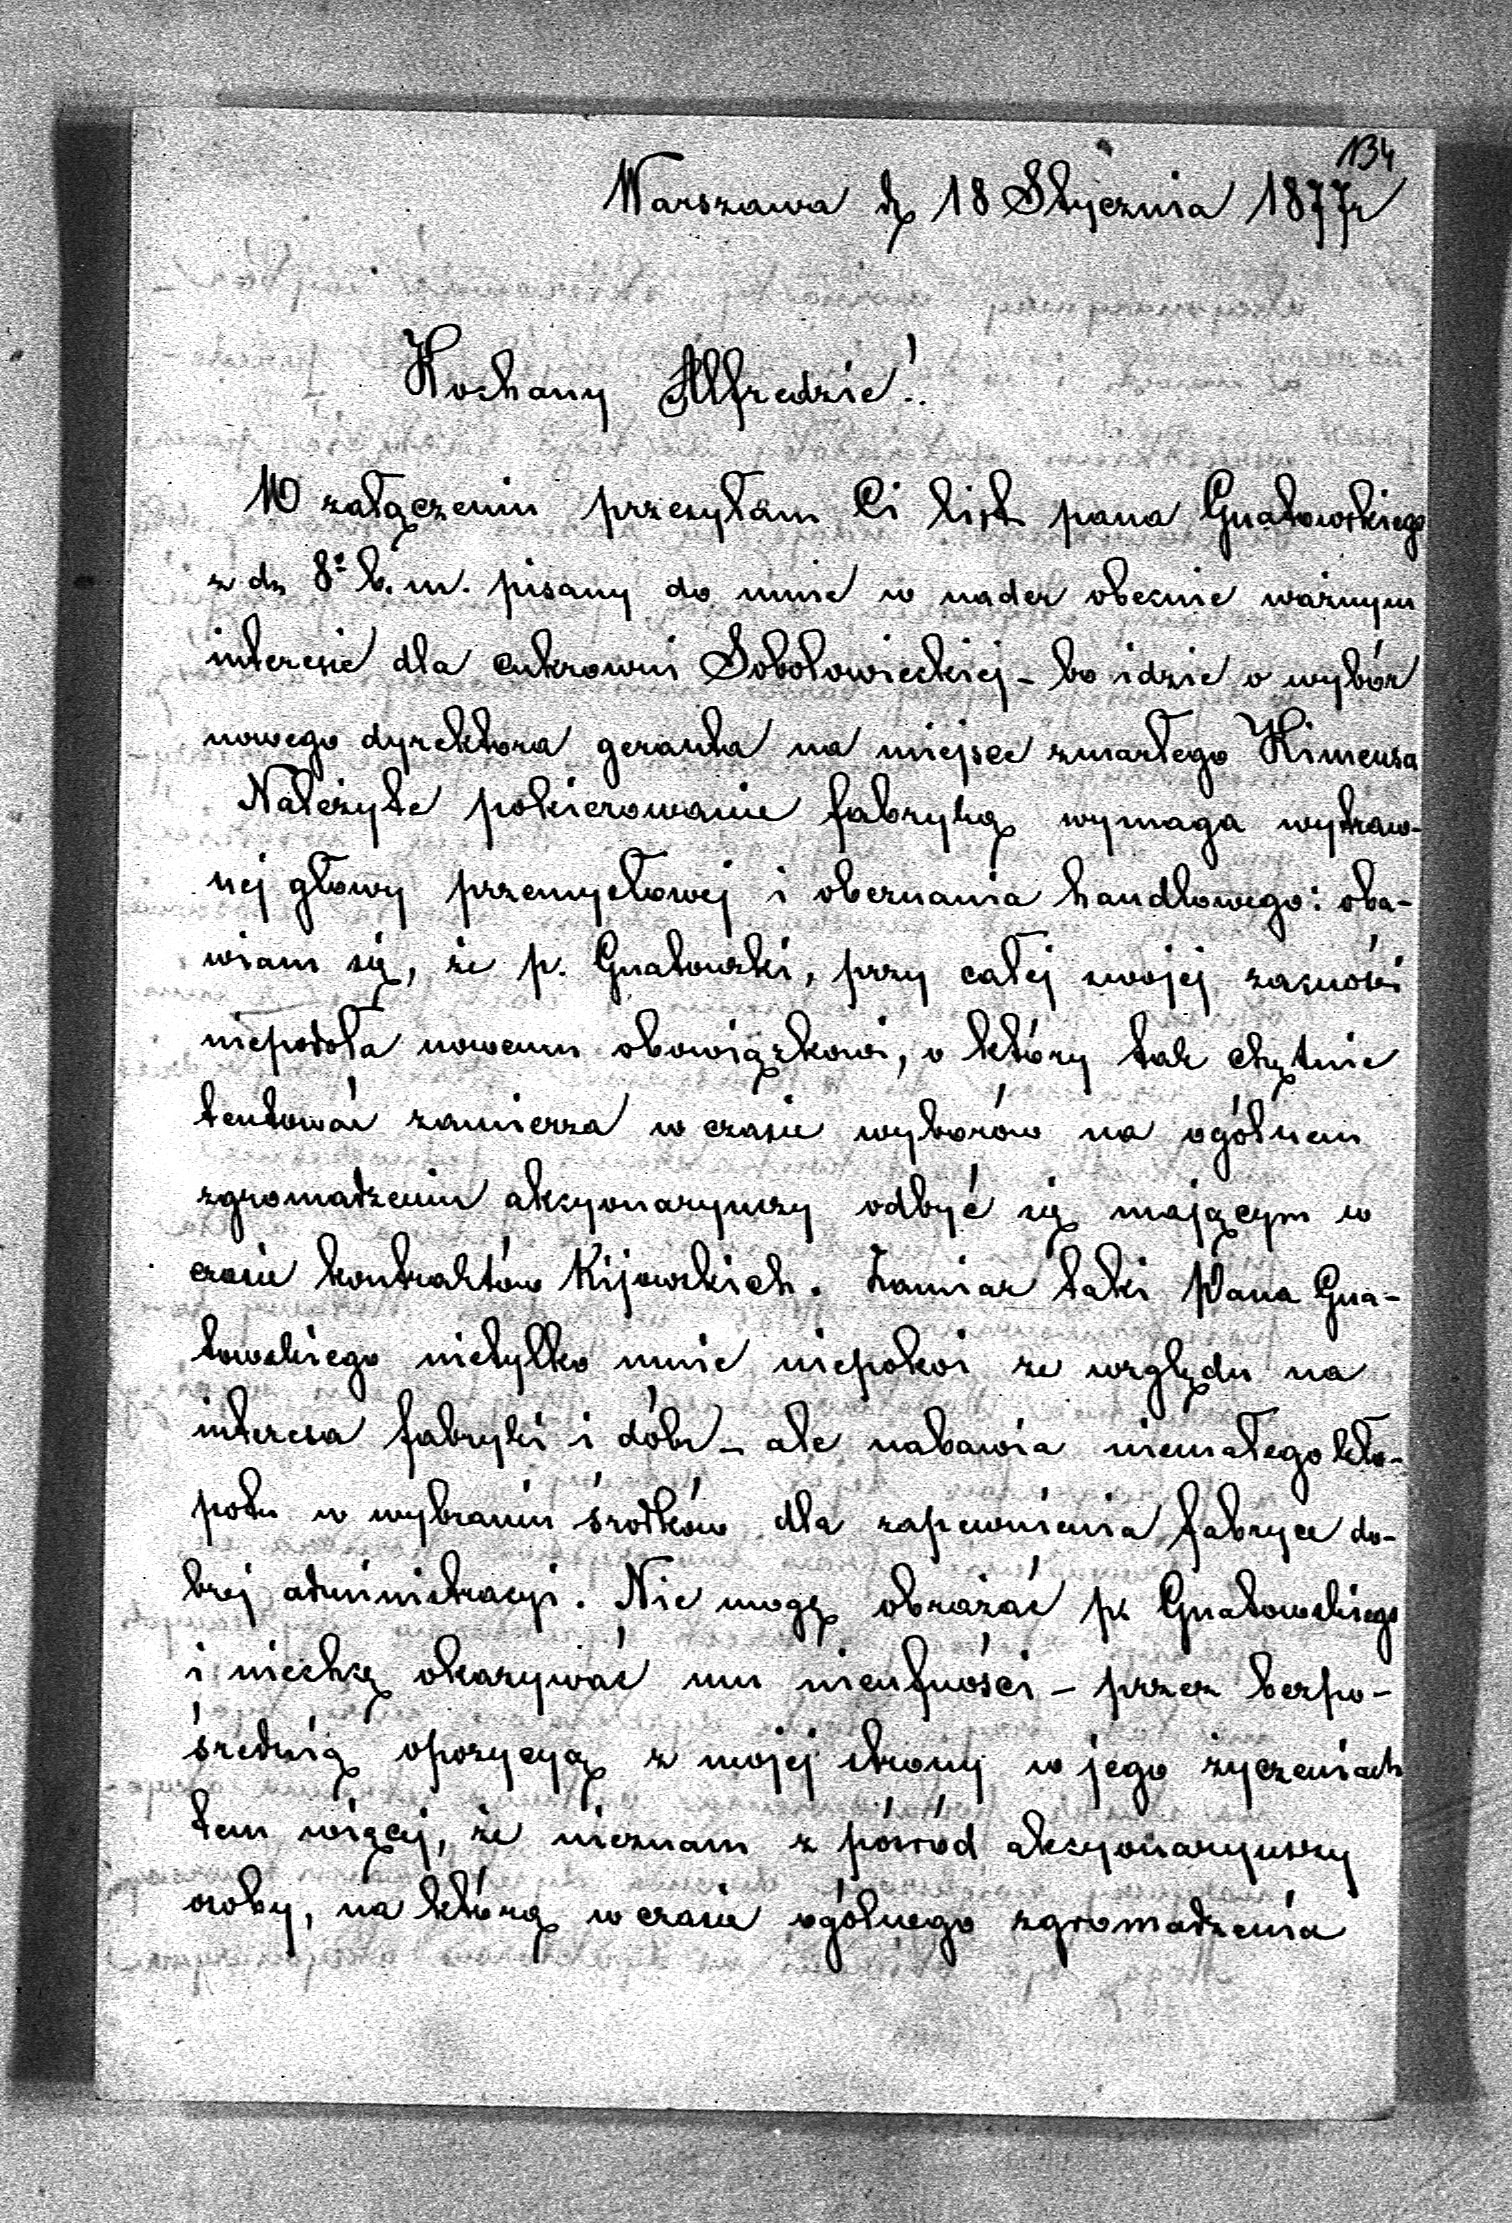 134
Warszawa d. 18 Stycznia 1877 r
Kochany Alfredzie!
W załączeniu przesyłam Ci list pana Gnatowskiego
z d. 8º b. m. pisany do mnie w nader obecnie ważnym
interesie dla cukrowni Sobolowieckiej – bo idzie o wybór
nowego dyrektora geranta na miejsce zmarłego Kimensa
Należyte pokierowanie fabryką wymaga wytraw-
nej głowy przemysłowej i obeznania handlowego: oba-
wiam się, że p. Gnatowski, przy całej swojej zacności
niepodoła nowemu obowiązkowi, o który tak chętnie
tentować zamierza w czasie wyborów na ogólnem
zgromadzeniu akcyonaryuszy odbyć się mającym w
czasie kontraktów Kijowskich. Zamiar taki Pana Gna-
towskiego nietylko mnie niepokoi ze względu na
interesa fabryki i dóbr – ale nabawia niemałego kło-
potu w wybraniu środków dla zapewnienia fabryce do-
brej administracyi. Nie mogę obrażać p. Gnatowskiego
i niechcę okazywać mu nieufności – przez bezpo-
średnią opozycyą z mojej strony w jego życzeniach
tem więcej, że nieznam z pośród akcyonaryuszy
osoby, na którą w czasie ogólnego zgromadzenia